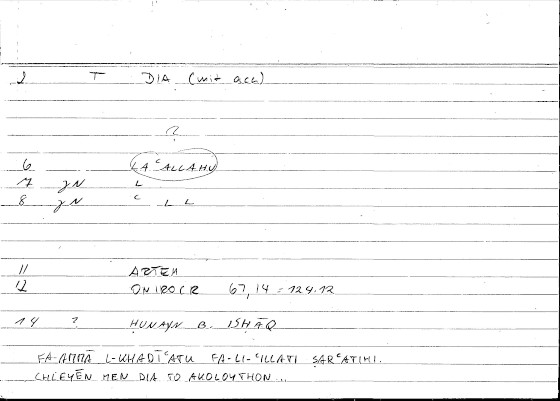 2 T DIA (mit acc)
?
6 LAʿALLAHU
7 γN L
8 γN ʿ L L
11 ARTEM
12 ONIROCR 67,14 = 124.12
14 ? HUNAYN B. ISHĀQ
FA-AMMĀ L-KHADĪʿATU FA-LI-ʿILLATI SARʿATIHI.
CHLEYĒN MEN DIA TO AKOLOYTHON...